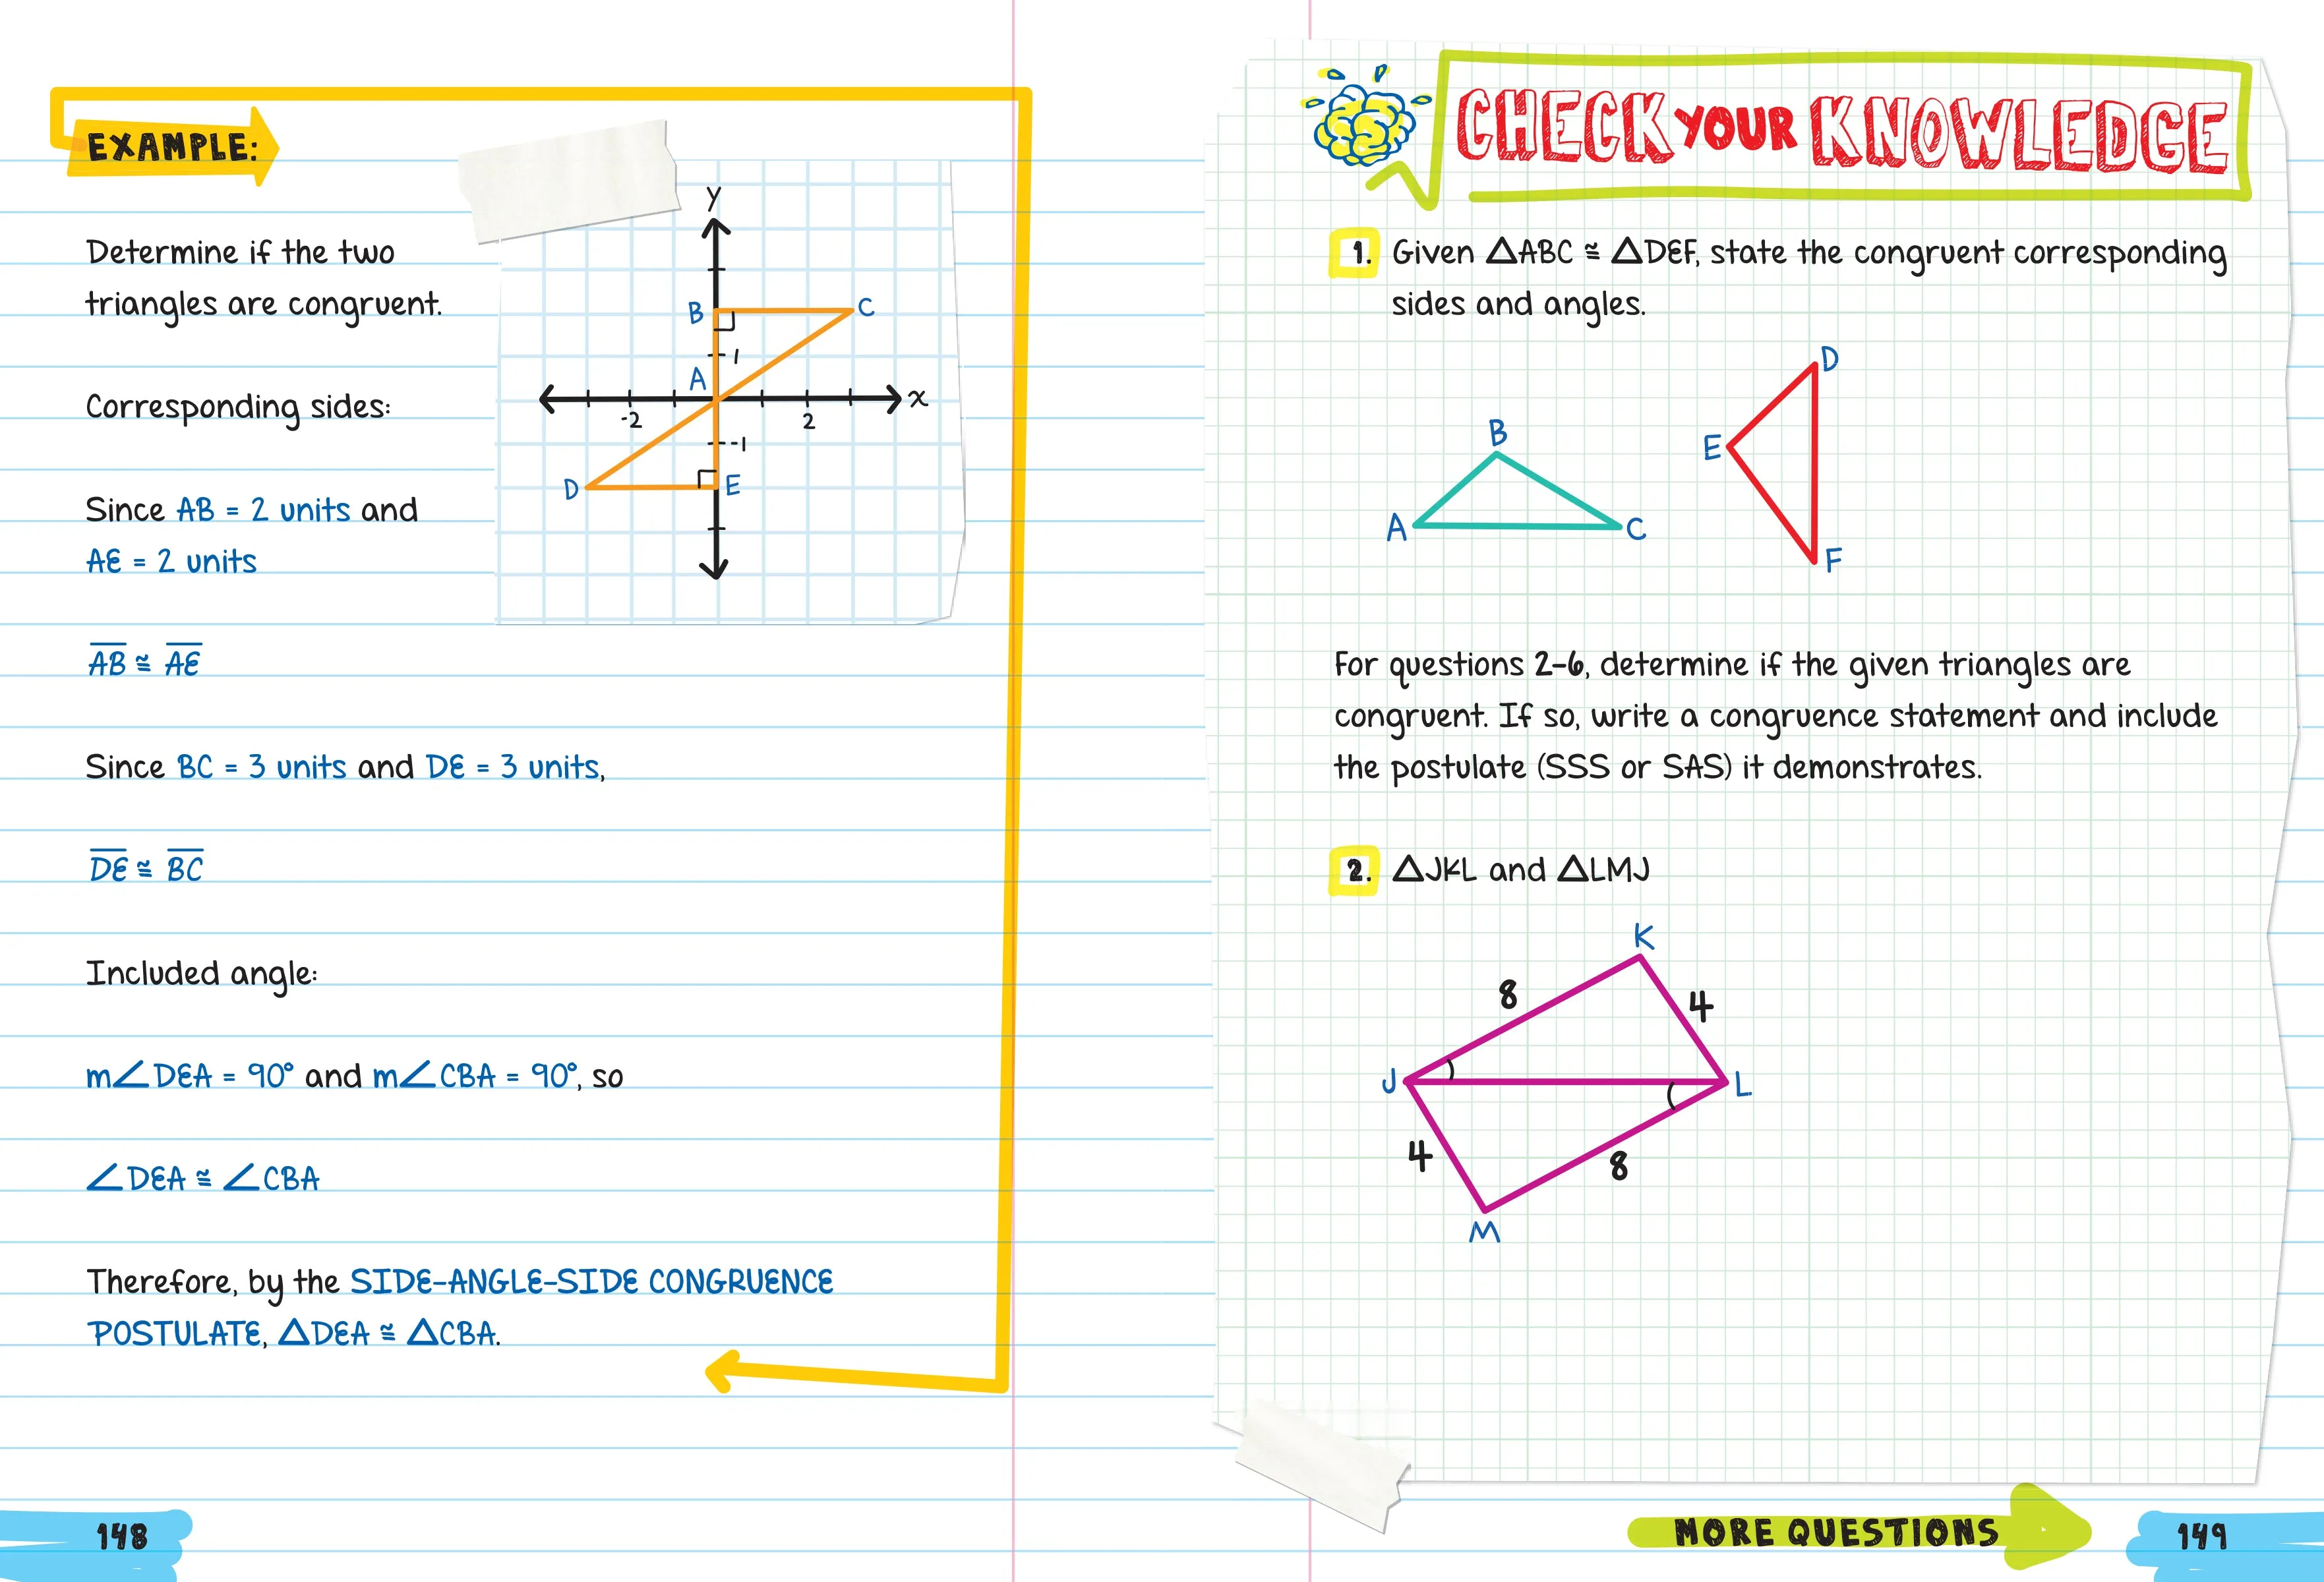 EXAMPLE:
Determine if the two
triangles are congruent.
Corresponding sides:
Since AB = 2 units and
AE = 2 units
y
B
C
1
A
x
-2
2
-1
D
E
AB ≅ AE
Since BC = 3 units and DE = 3 units,
DE ≅ BC
Included angle:
m∠DEA = 90° and m∠CBA = 90°, so
∠DEA ≅ ∠CBA
Therefore, by the SIDE-ANGLE-SIDE CONGRUENCE
POSTULATE, △DEA ≅ △CBA.
148
CHECK YOUR KNOWLEDGE
1. Given △ABC ≅ △DEF, state the congruent corresponding
sides and angles.
D
B
E
A
C
F
For questions 2-6, determine if the given triangles are
congruent. If so, write a congruence statement and include
the postulate (SSS or SAS) it demonstrates.
2. △JKL and △LMJ
K
8
4
J
L
4
8
M
MORE QUESTIONS
149